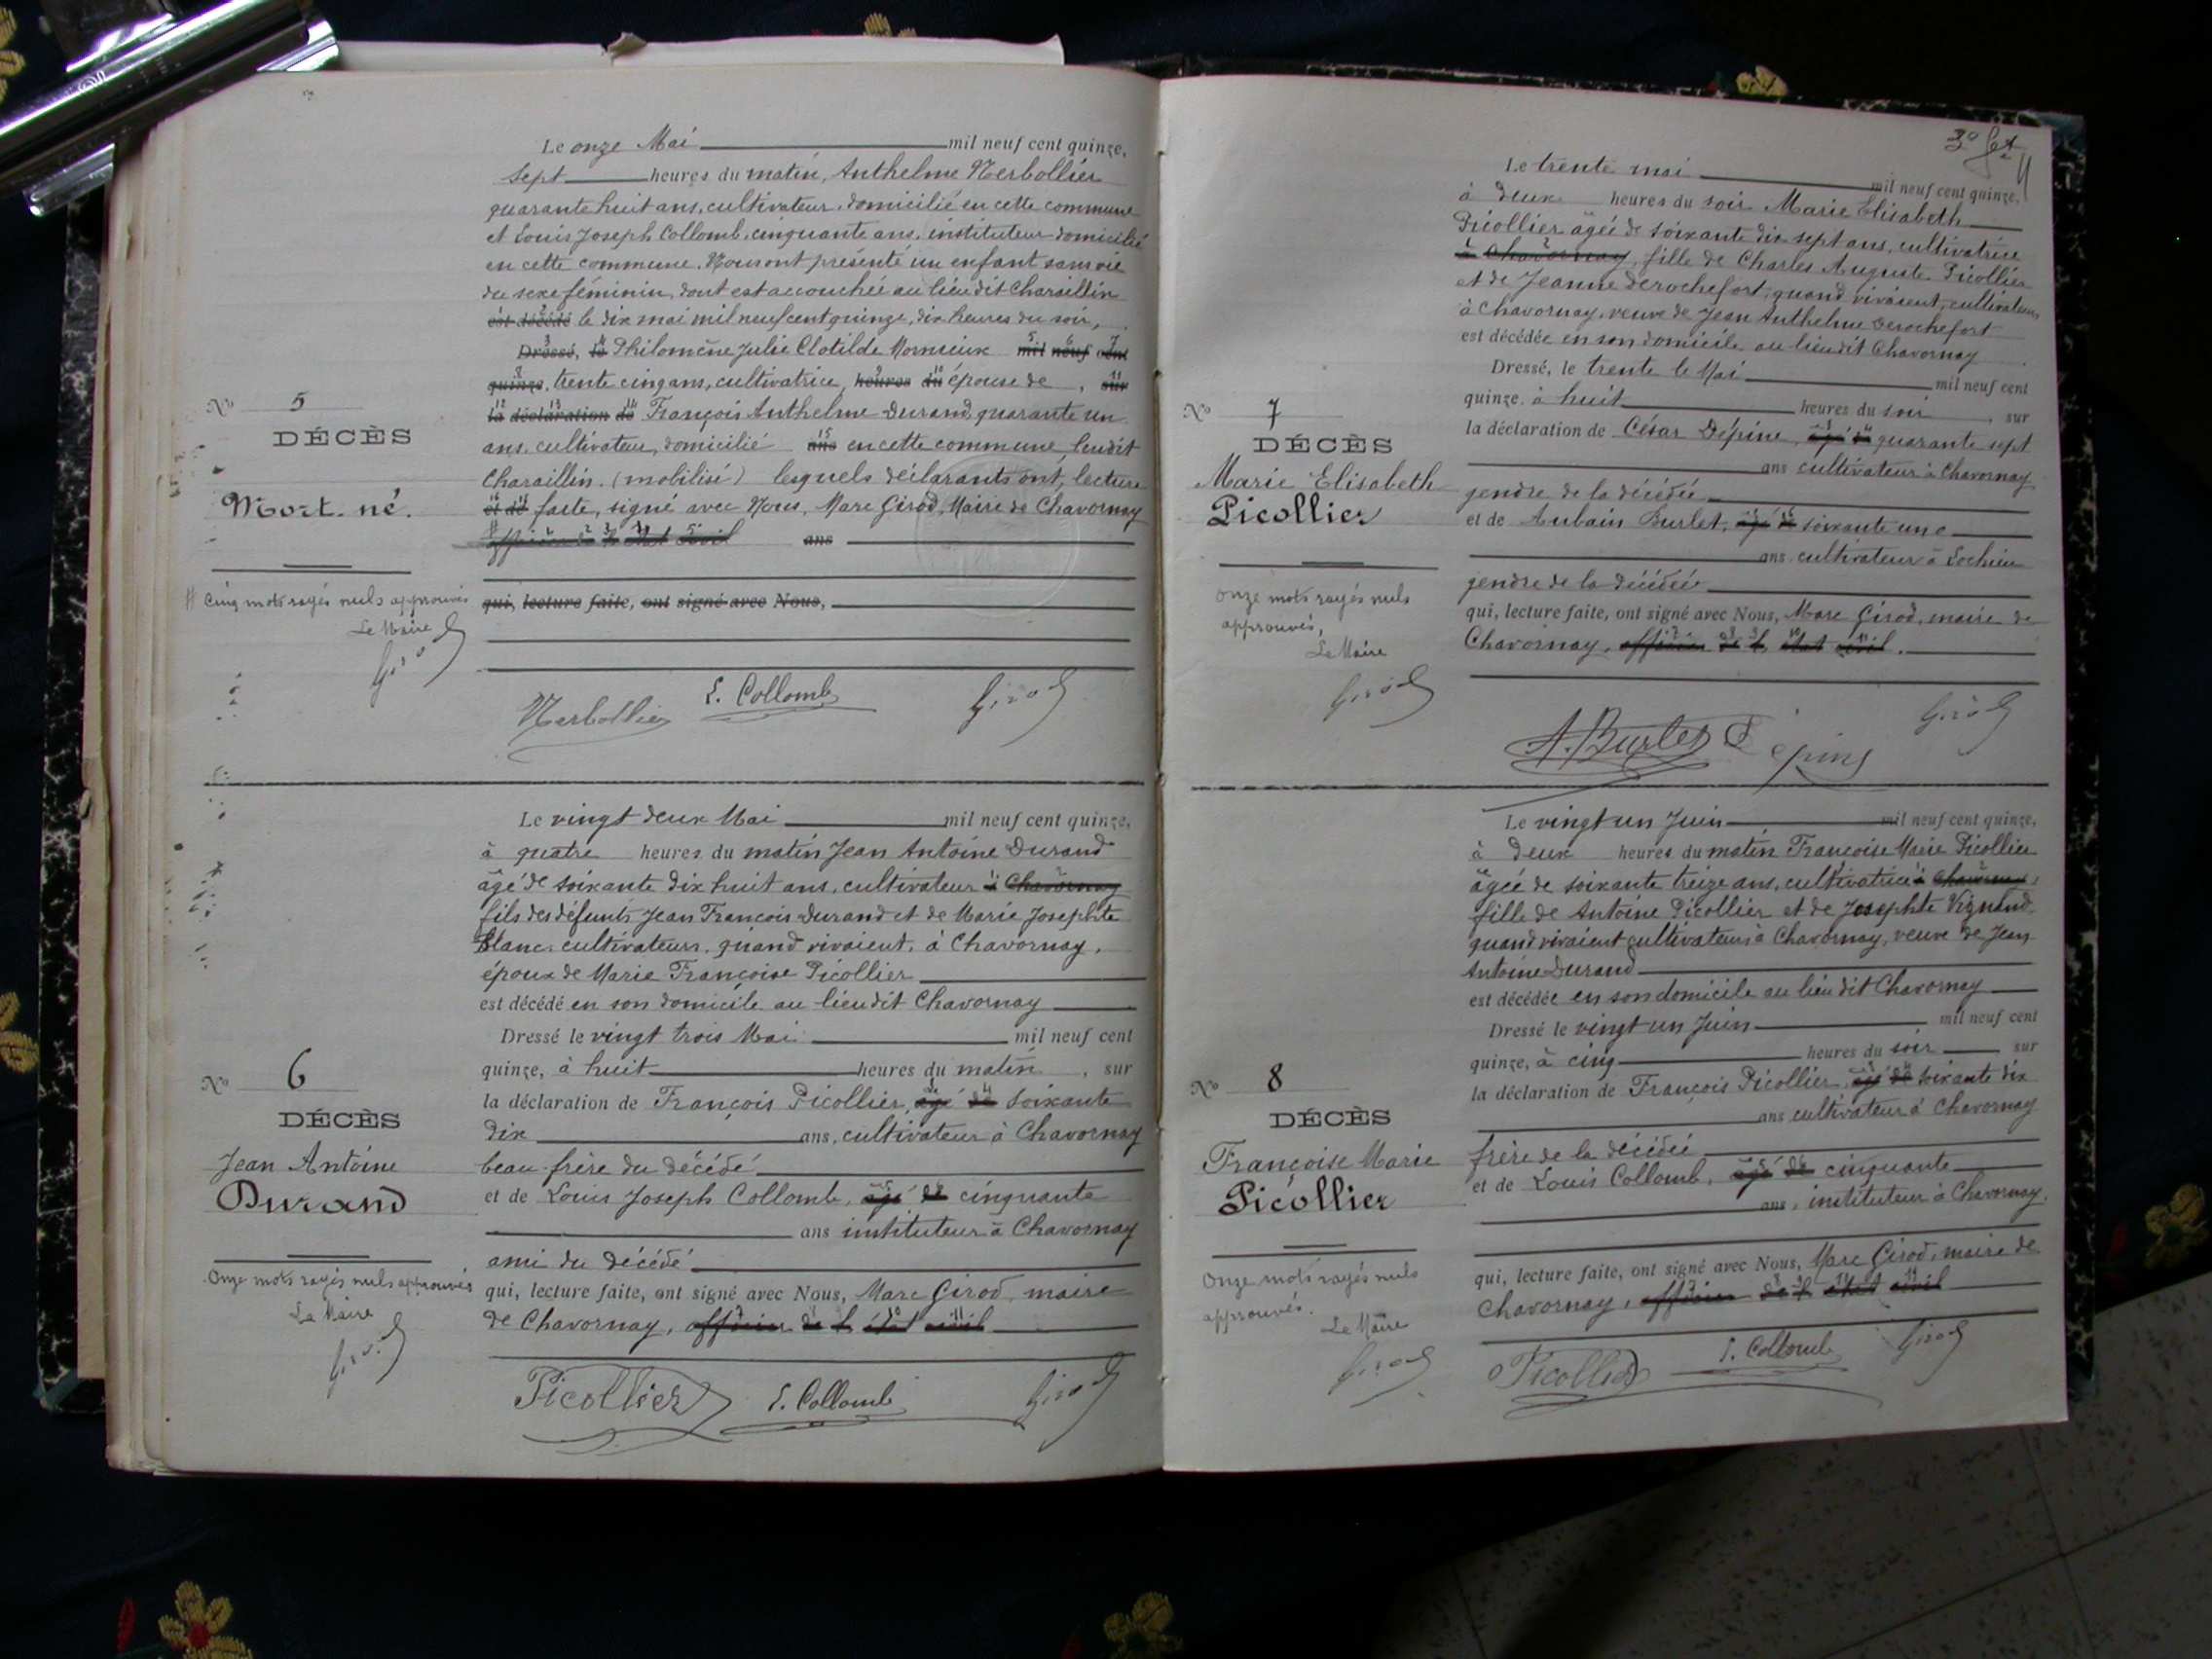 Le onze Mai mil neuf cent quinze,
sept heures du matin, Anthelme Nerbollier
quarante huit ans, cultivateur, domicilié en cette commune
et Louis Joseph Collomb, cinquante ans, instituteur domicilié
en cette commune. Nous ont présenté un enfant sans vie
du sexe féminin, dont est accouchée au lieu dit Charaillin
est décédé le dix mai mil neuf cent quinze, dix heures du soir,
Dressé, le Philomène Julie Clotilde mil neuf cent
quinze, trente cinq ans, cultivatrice, heures du épouse de , sur
la déclaration de François Anthelme Durand, quarante un
ans, cultivateur, domicilié ans en cette commune, lieudit
Charaillin. (mobilisé) lesquels déclarants ont, lecture
et de faite, signé avec Nous, Marc Girod, Maire de Chavornay
officier de l'état civil ans
qui, lecture faite, ont signé avec Nous,
No 5
DÉCÈS
Mort. né.
# Cinq mots rayés nuls approuvés
Le Maire
Girod
Nerbollier L. Collomb Girod
Le vingt deux Mai mil neuf cent quinze,
à quatre heures du matin Jean Antoine Durand
âgé de soixante dix huit ans, cultivateur à Chavornay
fils des défunts Jean François Durand et de Marie Josephte
Blanc, cultivateurs, quand vivaient, à Chavornay,
époux de Marie Françoise Picollier
est décédé en son domicile au lieu dit Chavornay
Dressé le vingt trois Mai mil neuf cent
quinze, à huit heures du matin , sur
la déclaration de François Picollier, âgé de soixante
dix ans, cultivateur à Chavornay
beau-frère du décédé
et de Louis Joseph Collomb, âgé de cinquante
ans instituteur à Chavornay
ami du décédé
qui, lecture faite, ont signé avec Nous, Marc Girod, maire
de Chavornay, officier de l'état civil
No 6
DÉCÈS
Jean Antoine
Durand
Onze mots rayés nuls approuvés
Le Maire
Girod
Picollier L. Collomb Girod
3e
Le trente mai mil neuf cent quinze,
à deux heures du soir Marie Elisabeth
Picollier âgée de soixante dix sept ans, cultivatrice
à Chavornay, fille de Charles Auguste Picollier
et de Jeanne Derochefort, quand vivaient, cultivateurs
à Chavornay, veuve de Jean Anthelme Derochefort
est décédée en son domicile au lieudit Chavornay
Dressé, le trente le Mai mil neuf cent
quinze, à huit heures du soir , sur
la déclaration de César Dépine, âgé de quarante sept
ans cultivateur à Chavornay
gendre de la décédée
et de Aubain Burlet, âgé de soixante une
ans cultivateur à Lochieu
gendre de la décédée
qui, lecture faite, ont signé avec Nous, Marc Girod, maire de
Chavornay, officier de l'état civil.
No 7
DÉCÈS
Marie Elisabeth
Picollier
Onze mots rayés nuls
approuvés,
Le Maire
Girod
A. Burlet Dépine Girod
Le vingt un Juin mil neuf cent quinze,
à deux heures du matin Françoise Marie Picollier
âgée de soixante treize ans, cultivatrice à Chavornay,
fille de Antoine Picollier et de Josephte Vignand
quand vivaient cultivateurs à Chavornay, veuve de Jean
Antoine Durand
est décédée en son domicile au lieu dit Chavornay
Dressé le vingt un Juin mil neuf cent
quinze, à cinq heures du soir sur
la déclaration de François Picollier, âgé de soixante dix
ans cultivateur à Chavornay
frère de la décédée
et de Louis Collomb, âgé de cinquante
ans, instituteur à Chavornay.
qui, lecture faite, ont signé avec Nous, Marc Girod, maire de
Chavornay, officier de l'état civil
No 8
DÉCÈS
Françoise Marie
Picollier
Onze mots rayés nuls
approuvés.
Le Maire
Girod
Picollier L. Collomb Girod